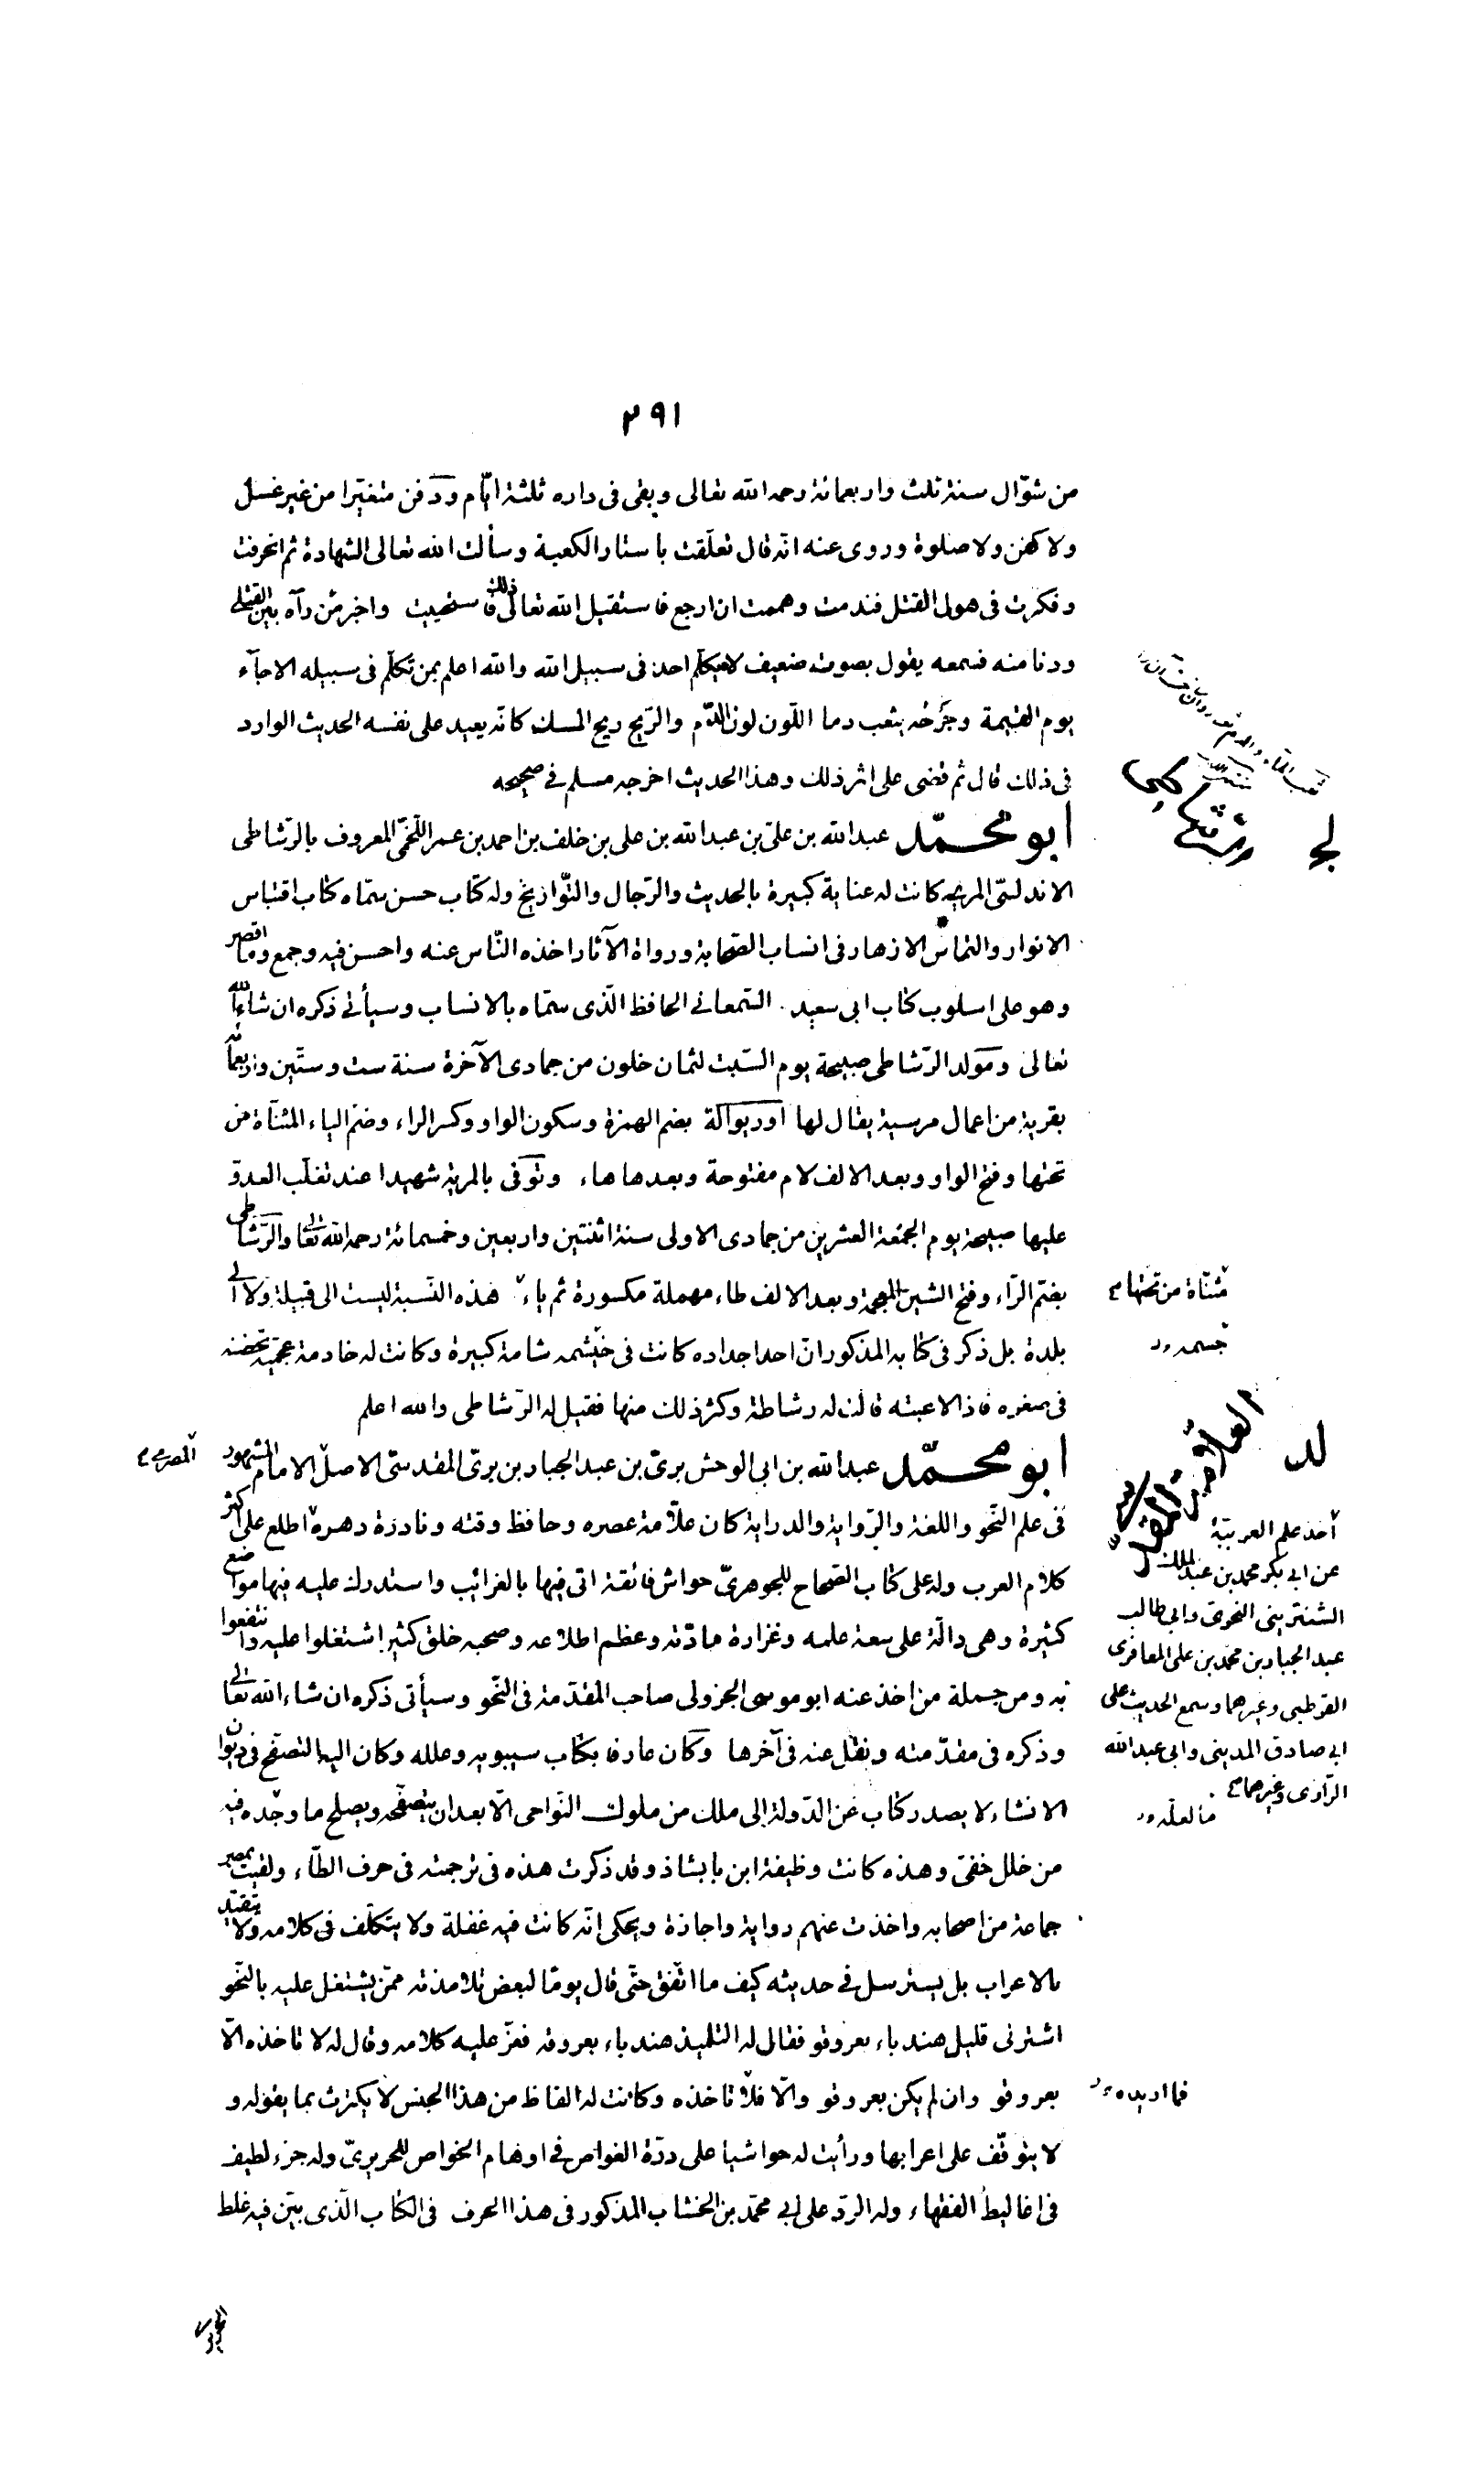 ٢٩١
من شوّال سنة ثلث واربعمائة رحمه الله تعالى وبقى فى داره ثلثة ايّام ودفن متغيّرا من غير غسل
ولا كفن ولا صلوة وروى عنه انّه قال تعلّقت باستار الكعبة وسألت الله تعالى الشهادة ثم انحرفت
وفكرت فى هول القتل فندمت وهممت ان ارجع فاستقيل الله تعالى ذلك فاستحييت واخبر من رآه بين القتلى
ودنا منه فسمعه يقول بصوت ضعيف لا يكلم احد فى سبيل الله والله اعلم بمن تكلّم فى سبيله الا جآء
يوم القيمة وجرحه يثعب دما اللّون لون الدّم والرّيح ريح المسك كانّه يعيد على نفسه الحديث الوارد
فى ذلك قال ثم قضى على اثر ذلك وهذا الحديث اخرجه مسلم فى صحيحه
رشاطى
ابو محمّد عبدالله بن علىّ بن عبدالله بن على بن خلف بن احمد بن عمر اللّخمىّ المعروف بالرّشاطى
الاندلسىّ المريه كانت له عناية كبيرة بالحديث والرّجال والتّواريخ وله كتاب حسن سمّاه كتاب اقتباس
الانوار والتماس الازهار فى انساب الصّحابة ورواة الآثار اخذه النّاس عنه واحسن فيه وجمع وما اقصر
وهو على اسلوب كتاب ابى سعيد السّمعانى الحافظ الّذى سمّاه بالانساب وسيأتى ذكره ان شاء الله
تعالى ومولد الرّشاطى صبيحة يوم السّبت لثمان خلون من جمادى الآخرة سنة ست وستّين واربعمائه
بقرية من اعمال مرسية يقال لها اوريوالة بضم الهمزة وسكون الواو وكسر الراء وضم الياء المثنّاة من
تحتها وفتح الواو وبعد الالف لام مفتوحة وبعدها هاء وتوفى بالمرية شهيدا عند تغلّب العدوّ
عليها صبيحة يوم الجمعة العشرين من جمادى الاولى سنة اثنتين واربعين وخمسمائة رحمه الله تعالى والرّشاطى
بضّم الرّاء وفتح الشين المعجمة وبعد الالف طاء مهملة مكسورة ثم ياء هذه النّسبة ليست الى قبيلة ولا الى
مثنّاة من تحتها
بلدة بل ذكر فى كتابه المذكور انّ احد اجداده كانت فى جسمه شامة كبيرة وكانت له خادمة عجميّة تحضنه
جسمه
فى صغره فاذا لاعبته قالت له رشاطة وكثر ذلك منها فقيل له الرّشاطى والله اعلم
العلامة المقدسى
ابو محمّد عبدالله بن ابى الوحش برىّ بن عبد الجبار بن برىّ المقدسىّ الاصل الامام المشهور
المصرى
فى علم النّحو واللغة والرّواية والدراية كان علّامة عصره وحافظ وقته ونادرة دهره اطلع على اكثر
اخذ علم العربيّة
عن ابى بكر محمد بن عبد الملك
الشنترينى النحوى وابى طالب
عبد الجبار بن محمّد بن على المعافرى
القرطبى وغيرهما وسمع الحديث على
ابى صادق المدينى وابى عبدالله
الرّازى وغيرهما
كلام العرب وله على كتاب الصّحاح للجوهرىّ حواش فائقة اتى فيها بالغرائب واستدرك عليه فيها مواضع
كثيرة وهى دالّة على سعة علمه وغزارة مادّته وعظم اطلاعه وصحبه خلق كثير اشتغلوا عليه وانتفعوا
به ومن جملة من اخذ عنه ابو موسى الجزولى صاحب المقدّمة فى النّحو وسيأتى ذكره ان شاء الله تعالى
وذكره فى مقدّمته ونقل عنه فى آخرها وكان عارفا بكتاب سيبويه وعلله وكان اليه التصفّح فى ديوان
الانشاء لا يصدر كتاب عن الدّولة الى ملك من ملوك النّواحى الّا بعد ان يتصفّحه ويصلح ما وجده فيه
من خلل خفىّ وهذه كانت وظيفة ابن بابشاذ وقد ذكرت هذه فى ترجمته فى حرف الطّاء ولقيت بمصر
جماعة من اصحابه واخذت عنهم رواية واجازة ويحكى انّه كانت فيه غفلة ولا يتكلّف فى كلامه ولا يتقيّد
بالاعراب بل يسترسل فى حديثه كيف ما اتّفق حتّى قال يومًا لبعض تلامذته ممّن يشتغل عليه بالنّحو
اشتر لى قليل هندباء بعروقو فقال له التلميذ هندباء بعروقه فعزّ عليه كلامه وقال له لا تاخذه الّا
بعروقو وان لم يكن بعروقو والّا فلا تاخذه وكانت له الفاظ من هذا الجنس لا يكترث بما يقوله و
فما اريده
لا يتوقّف على اعرابها ورأيت له حواشيا على درّة الغواص فى اوهام الخواص للحريرىّ وله جزء لطيف
فى اغاليط الفقهاء وله الردّ على ابى محمّد بن الخشاب المذكور فى هذا الحرف فى الكتاب الّذى بيّن فيه غلط